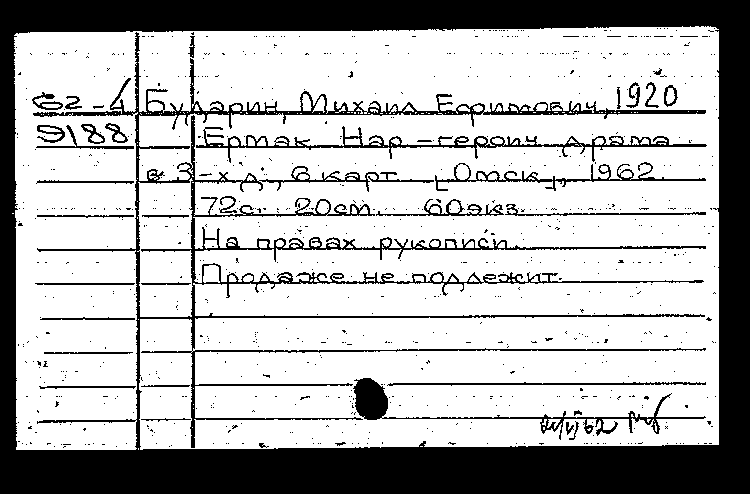 62-4 Бударин, Михаил Ефимович, 1920
9188 Ермак. Нар-героич. драма
в 3-х д., 6 карт. [Омск], 1962.
72с. 20см. 60экз.
На правах рукописи.
Продаже не подлежит.